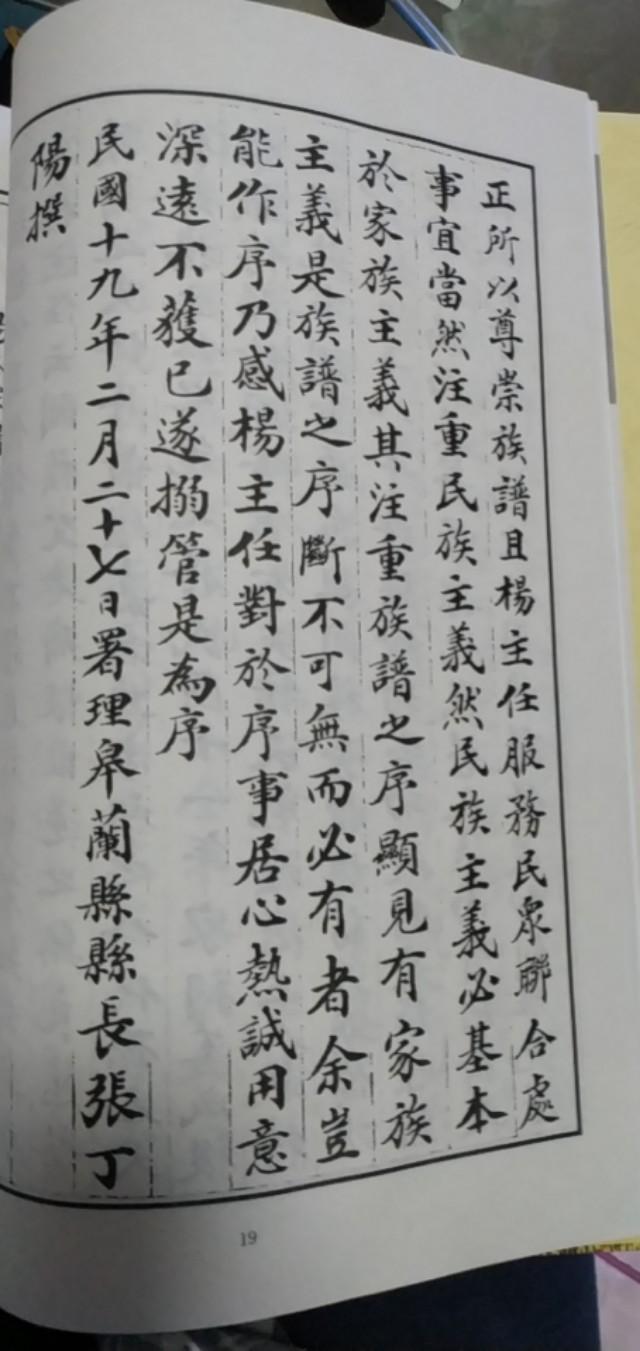 正所以尊崇族譜且楊主任服務民衆聯合處
事宜當然注重民族主義然民族主義必基本
於家族主義其注重族譜之序顯見有家族
主義是族譜之序斷不可無而必有者余豈
能作序乃感楊主任對於序事居心熱誠用意
深遠不獲已遂搦管是為序
民國十九年二月二十七日署理皋蘭縣縣長張丁
陽撰
19